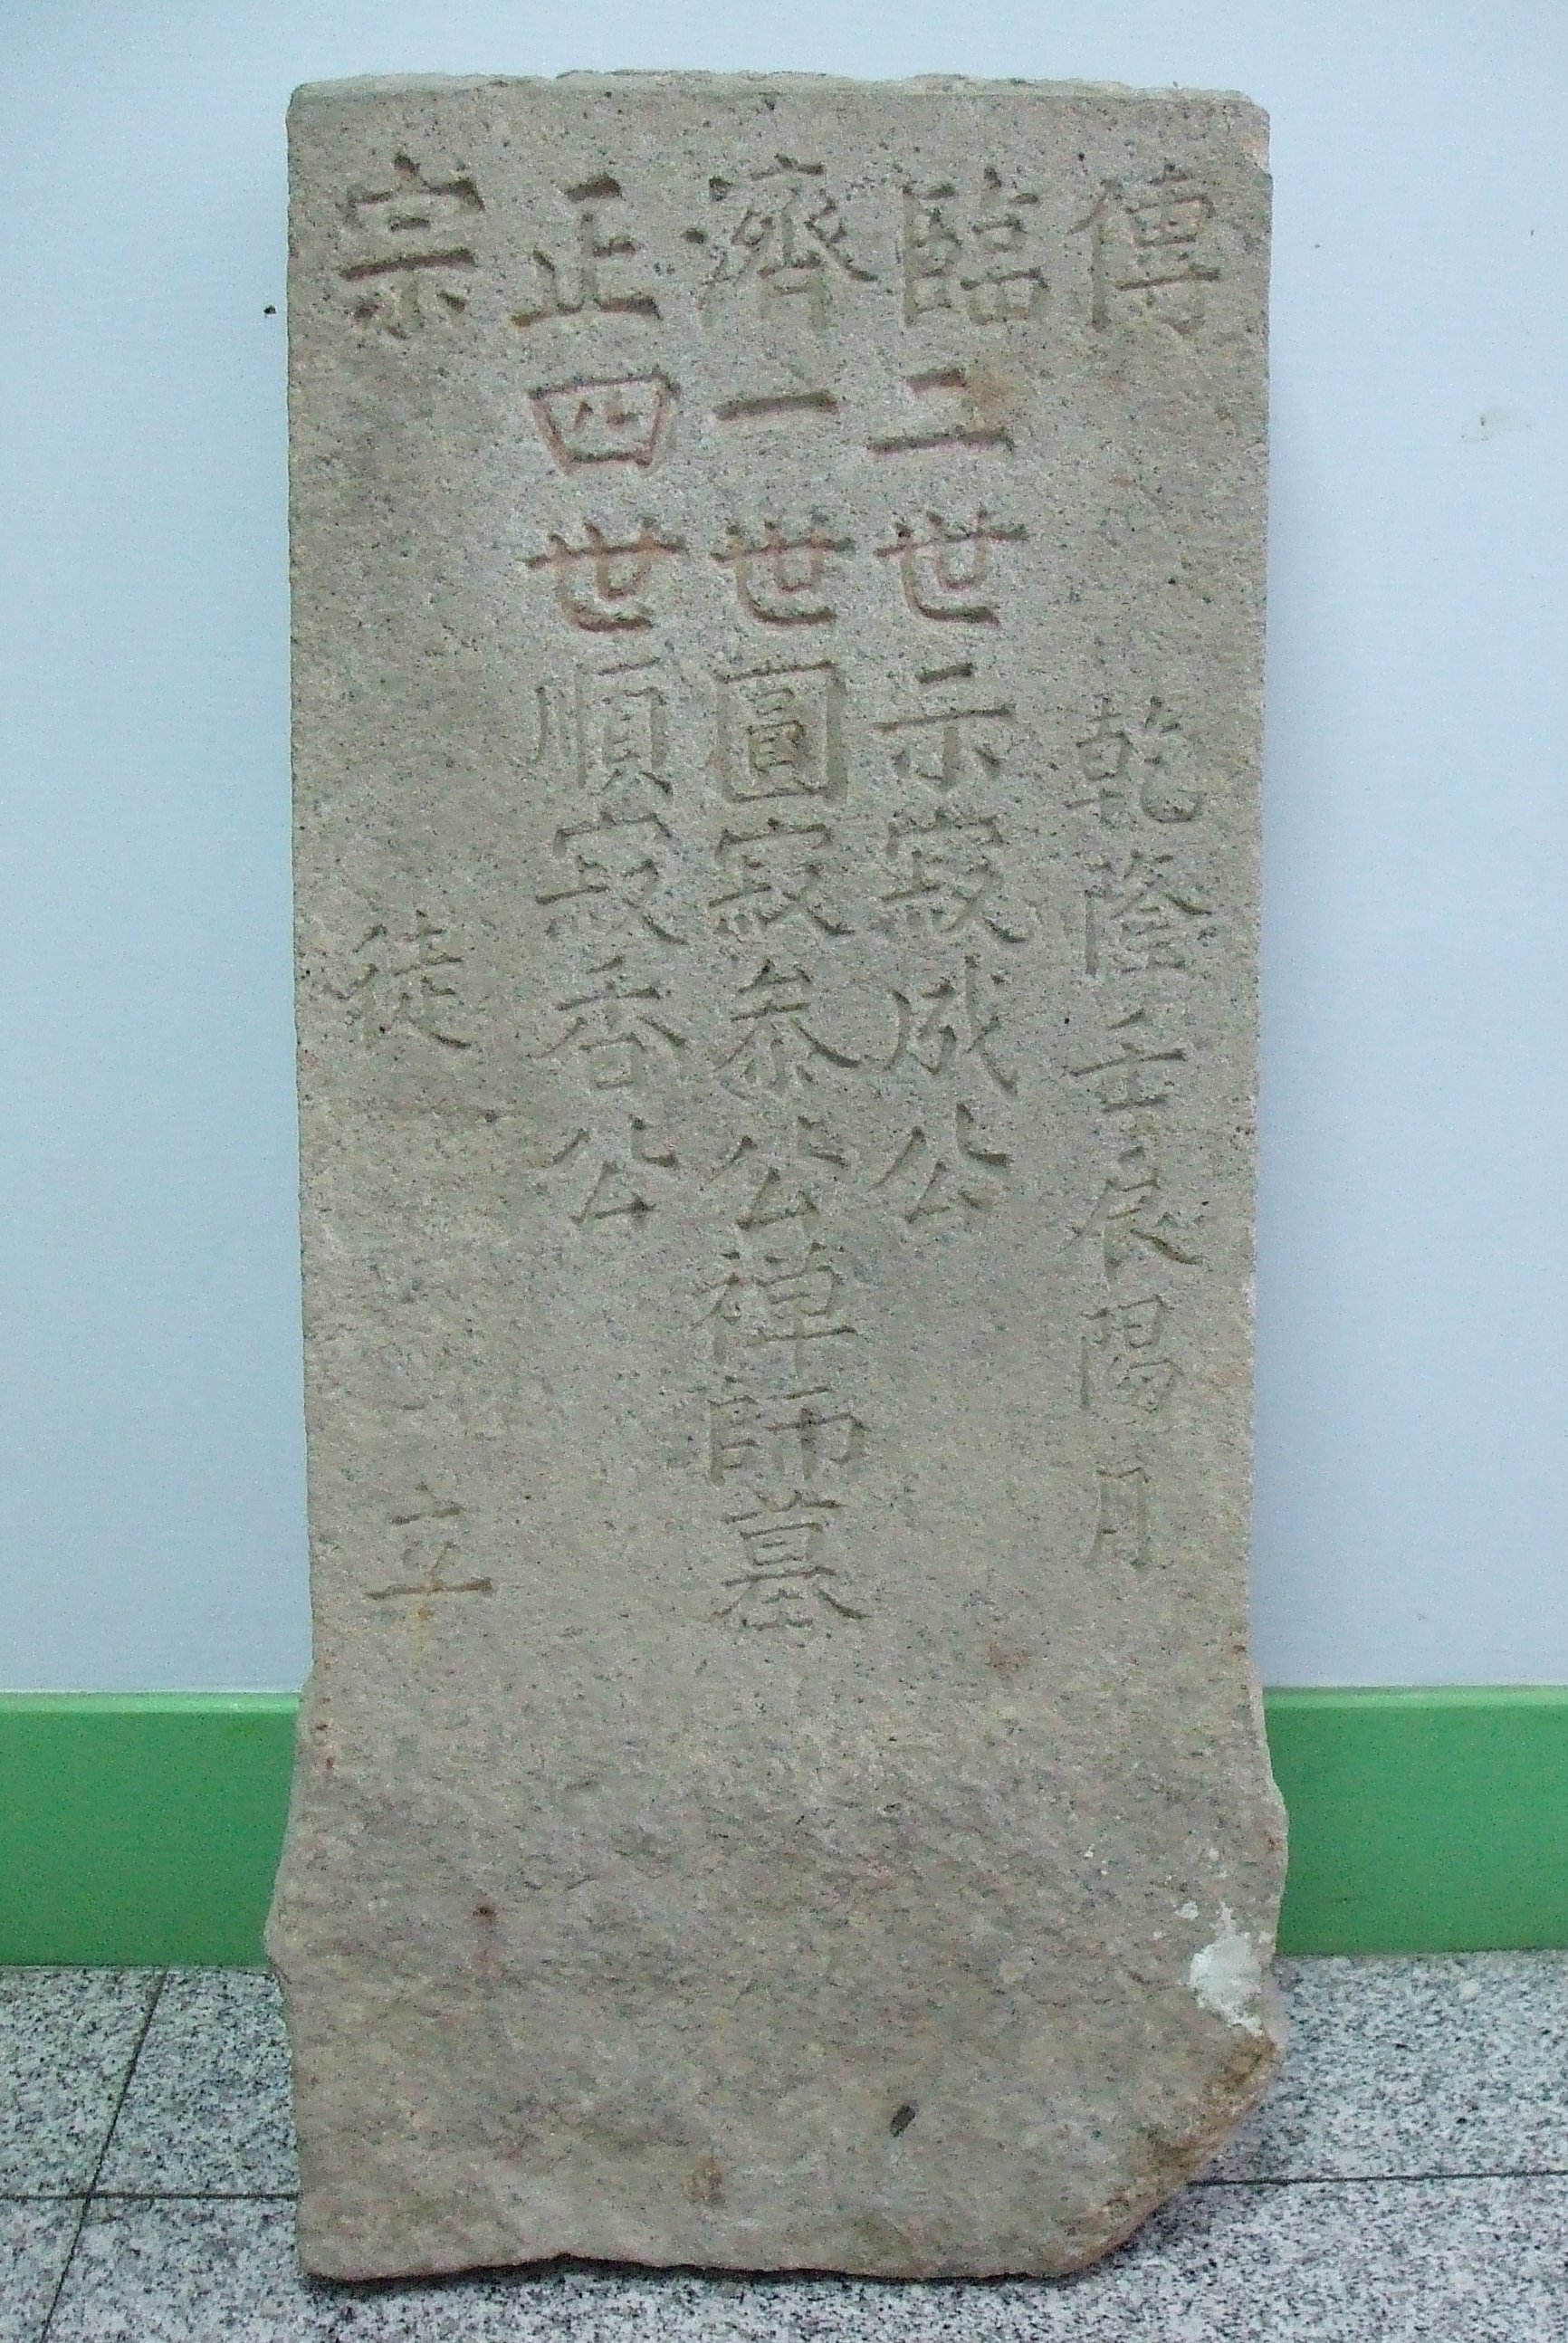 傳臨濟正宗
乾隆壬辰陽月
二世示寂成公
一世圓寂叅公禪師墓
四世順寂香公
徒 立